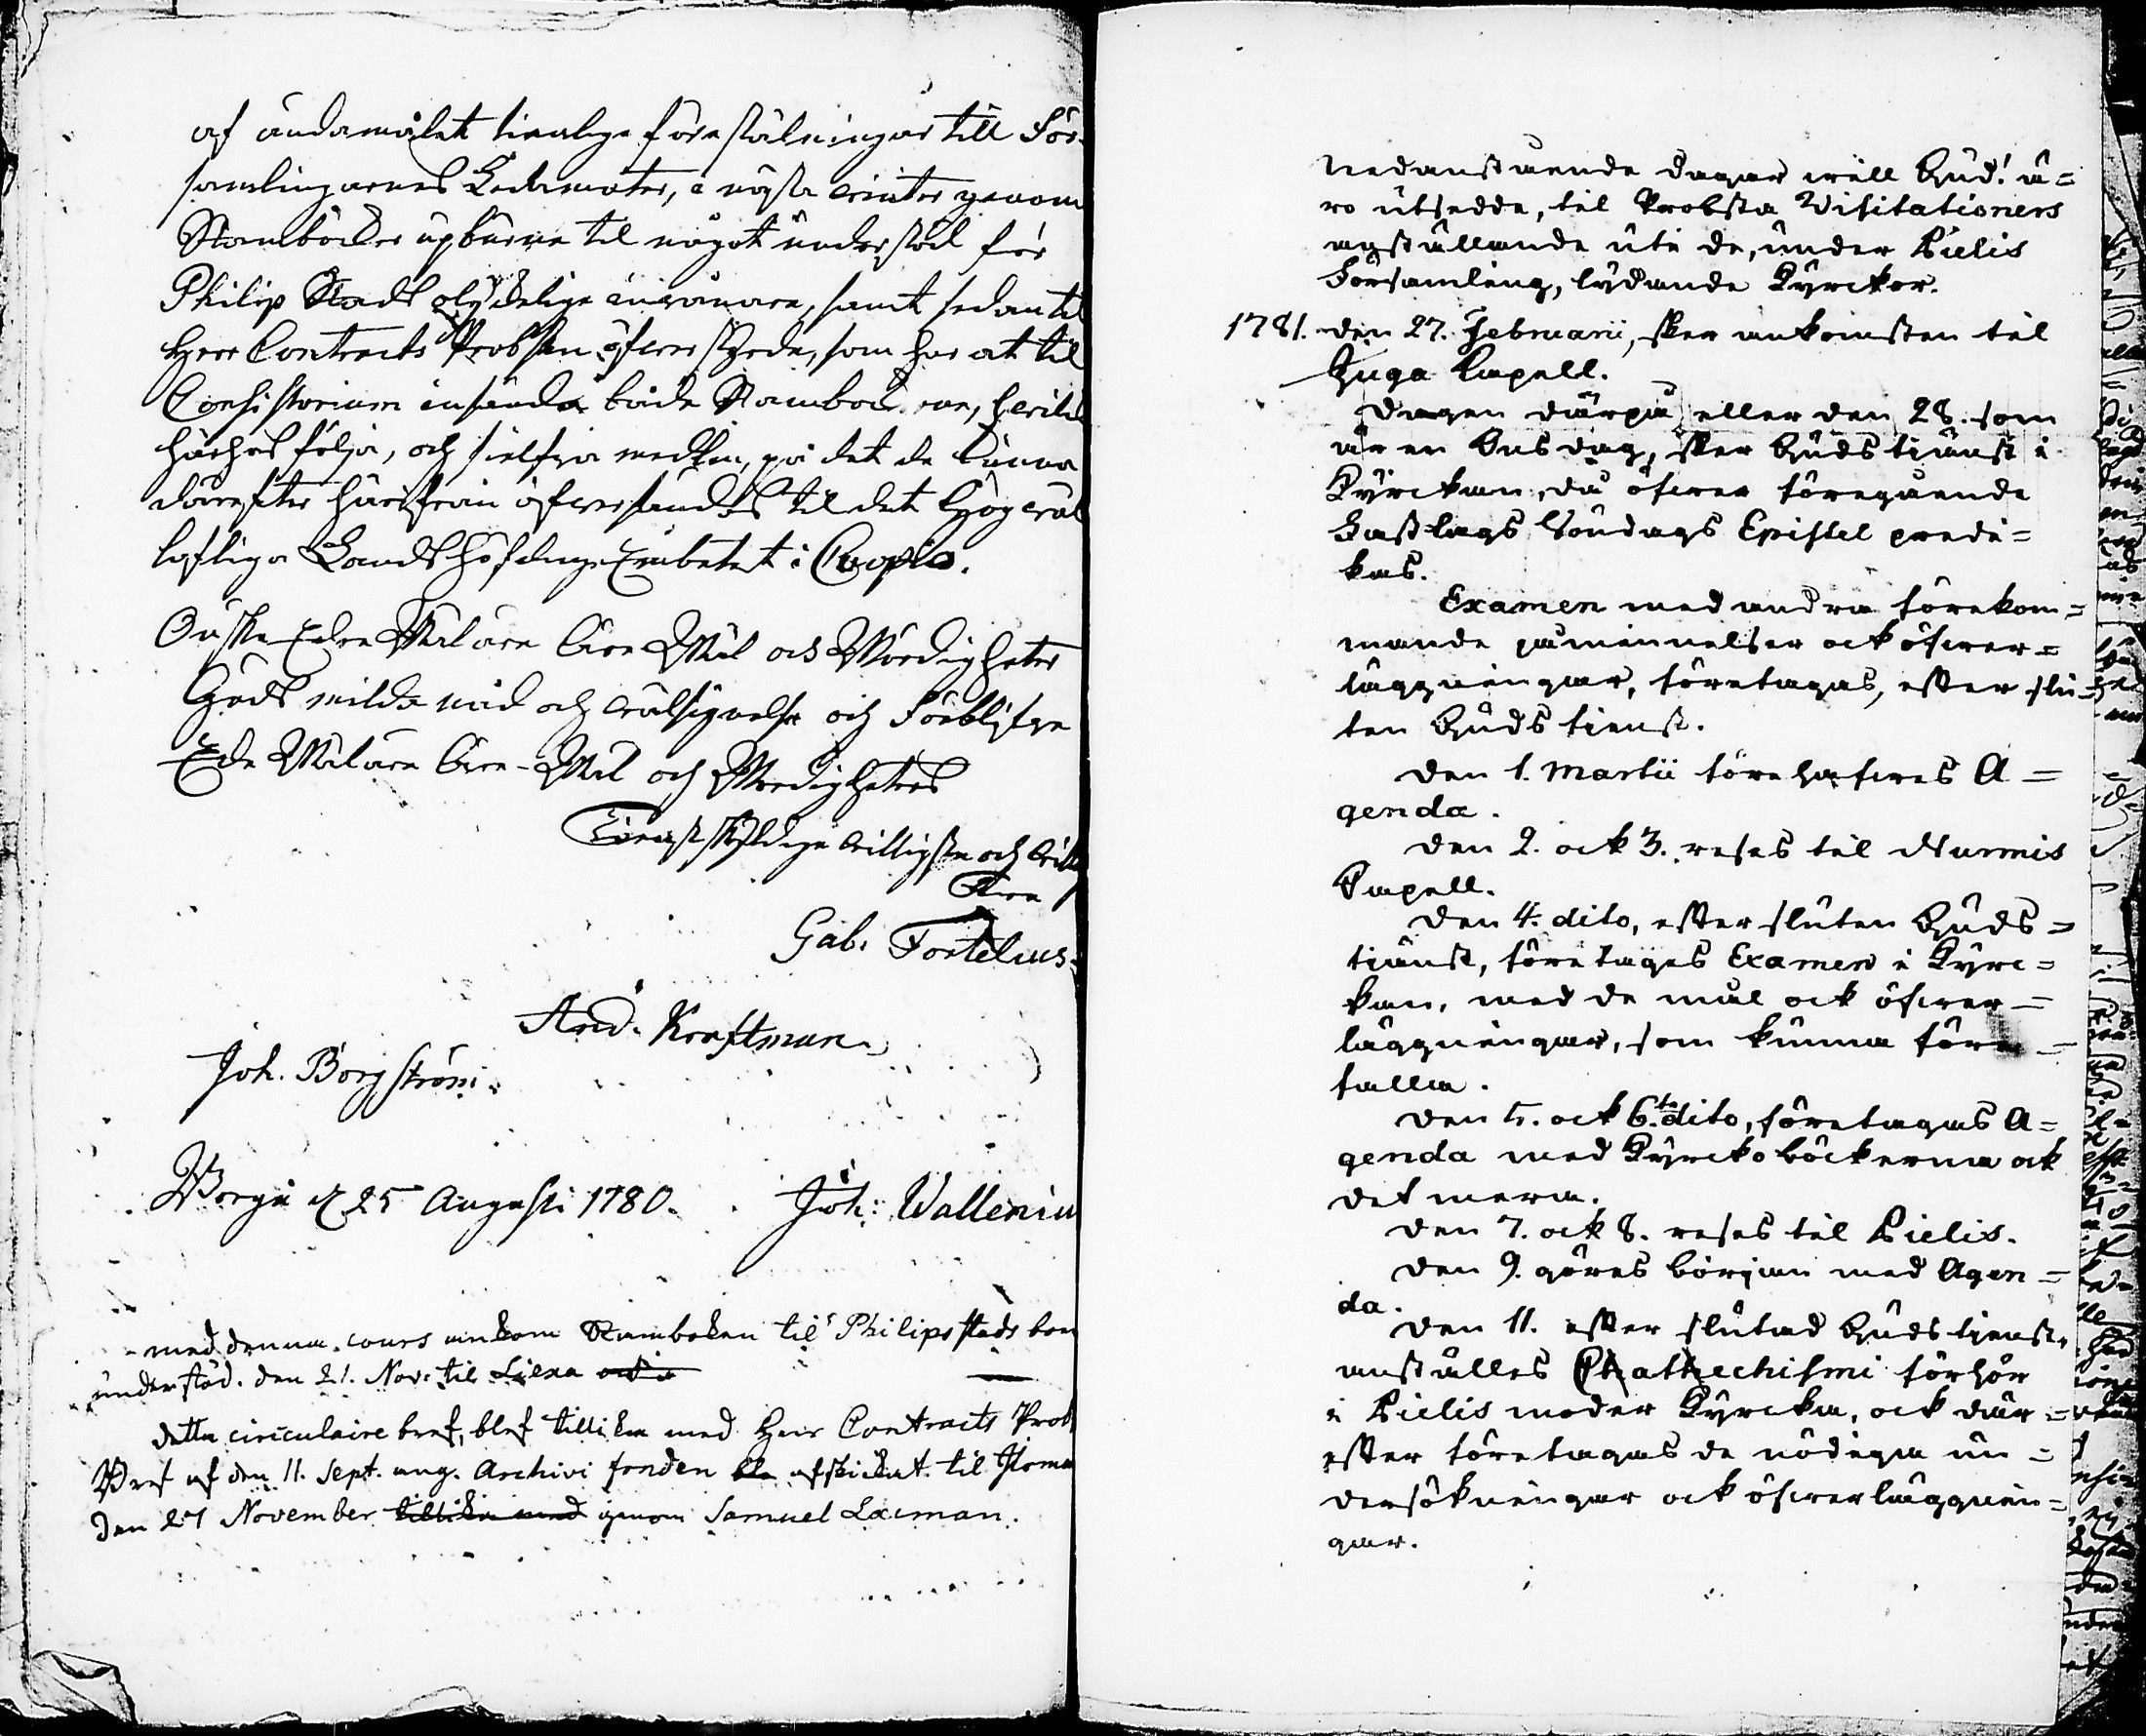 af ändamålet tienlige föreställningar till För-
samlingarnes Ledamöter, i nästa winter genom
Stamböcker upbäres til något understöd för
Philip Stads olyckelige inwånare, samt sedan til
Herr Contracts Probsten öfwersända, som har at til
Consistorium insända både Stamböckerne,
härhos följa, och sielfwa medlen, på det de kunna
därefter härifrån öfwersändas til det Högwäl
loflige Landshöfdinge Embetet i Cuopio.
Önske Eder Wäläre Ären Wäl och Wördigheter
Guds milda nåd och wälsignelse och förblifwe
Eder Wälärer Ären-Wäl och Wördigheters
Tienstskyldige willigste och
Gab. Fortelius.
And. Kraftman.
Joh. Borgström.
Borgå d 25 Augusti 1780. Joh: Wallenius
med denna cours ankom Stamboken til Philipsstads
understöd. den 21. Nov. til Liexa
detta circulaire bref, blef tillika med Herr Contracts Prob
Bref af den 11. Sept. ang. Archivi fonden afskickat til Iloma
den 27 November tillika med genom Samuel Laxman.
Nedanstående dagar will Gud! ä=
ro utsedde, til Probsta Visitationers
anställande uti de, under Pielis
Församling, lydande Kyrckor.
1781. den 27. Februarii, sker ankomsten til
Juga Capell.
dagen därpå eller den 28. som
är en Onsdag, sker Gudstjänst i
Kyrckan, då öfwer föregående
Fastlags Söndags Epistel predi=
kas.
Examen med andra förekom=
mande påminnelser ock öfwer=
läggningar, företagas, efter slu=
ten Gudstienst.
den 1. Martii förehafwes A=
genda.
den 2. ock 3. reses til Nurmis
Capell.
den 4. dito, efter sluten Guds=
tjänst, företages Examen i Kyrc=
kan, med de mål ock öfwer=
läggningar, som kunna före=
falla.
den 5. ock 6.te dito, företagas A=
genda med Kyrckoböckerna ock
det mera.
den 7. ock 8. reses til Pielis.
den 9. göres början med Agen=
da.
den 11. efter slutad Gudstjenst,
anställes Chathechismi förhör
i Pielis moder Kyrcka, ock där=
efter företagas de nödiga un=
dersökningar ock öfwerläggnin=
gar.